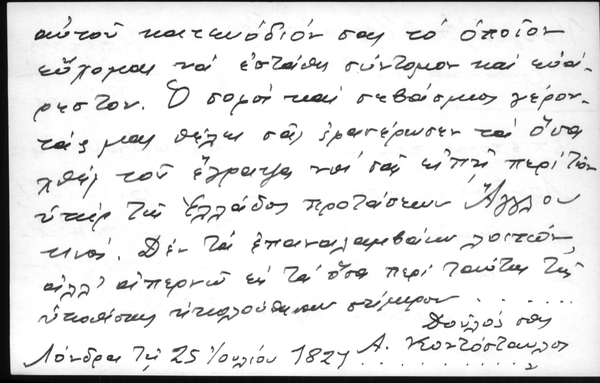 αὐτοῦ κατευόδιόν σας τὸ ὁποῖον
εὔχομαι νὰ ἐστάθη σύντομον καὶ εὐά-
ρεστον. Ὁ σοφὸς καὶ σεβάσμιος γέρον-
τάς μας θέλει σᾶς φανερώσει τὰ ὅσα
χθὲς τοῦ ἔγραψα νὰ σᾶς εἰπῇ περὶ τῶν
ὑπὲρ τῆς Ἑλλάδος προτάσεων Ἄγγλου
τινός. Δὲν τὰ ἐπαναλαμβάνω λοιπόν,
ἀλλ' ἀπερνῶ εἰς τὰ ὅσα περὶ ταύτης τῆς
ὑποθέσεως ἠκολούθησαν σήμερον . . . . . .
Δοῦλός σας
Λόνδρα τῇ 25 Ἰουλίου 1827 Α. Κοντόσταυλος